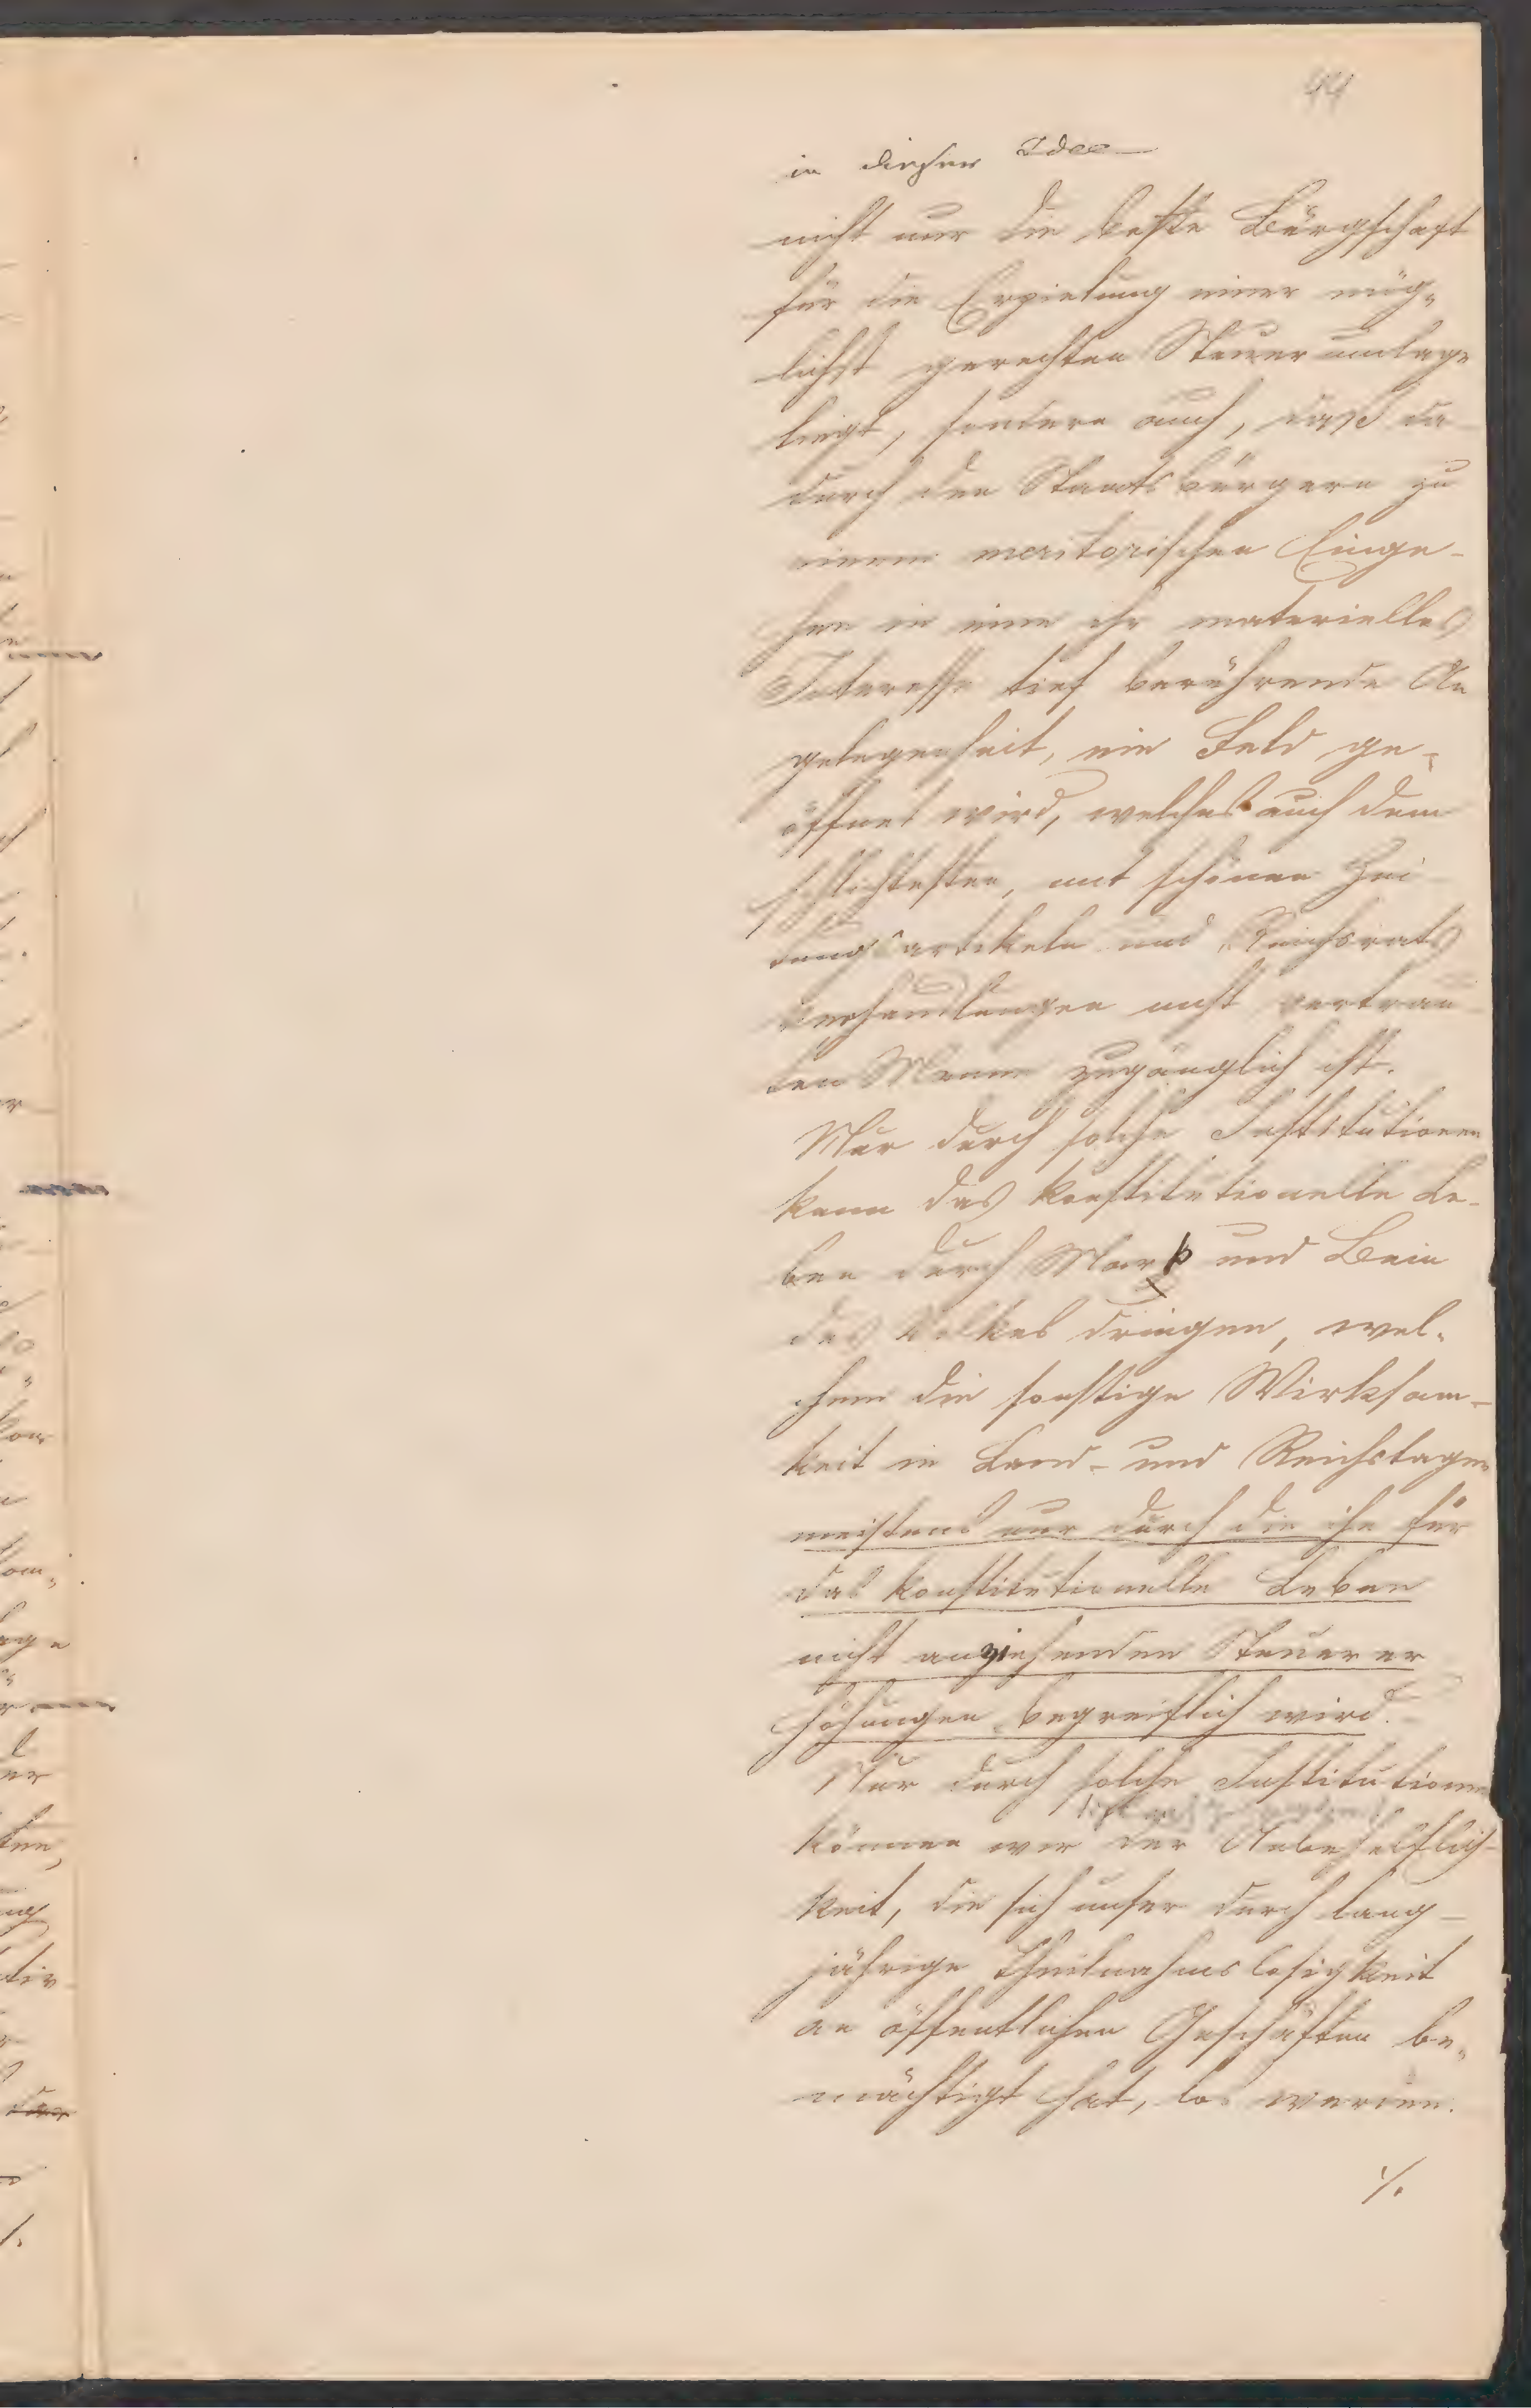 44
in dieser Idee
nicht nur die beste Bürgschaft
für die Erzielung einer mög-
lichst gerechten Steuerumlage
liegt, sondern auch, dass da
durch den Staatsbürgern zu
einem meritorischen Einge-
hen in eine ihr materielles
Interesse tief berührende An
gelegenheit, ein Feld ge-
öffnet wird, welches auch dem
schlichtesten, mit schönen Zei
tungsartikeln und Reichsrats
verhandlungen nicht vertrau
ten Manne zugänglich ist.
Nur durch solche Institutionen
kann das konstitutionelle Le-
ben durch Mark und Bein
des Volkes dringen, wel-
chem die sonstige Wirksam-
keit in Land- und Reichstagen
meistens nur durch die ihn für
das konstitutionelle Leben
nicht anziehenden Steuerer
höhungen begreiflich wird.
Nur durch solche Institutionen
können wir der Unbehelflich-
keit, die sich unser durch lang-
jährige Theilnahmslosigkeit
an öffentlichen Geschäften be-
mächtigt hat, los werden.
./.